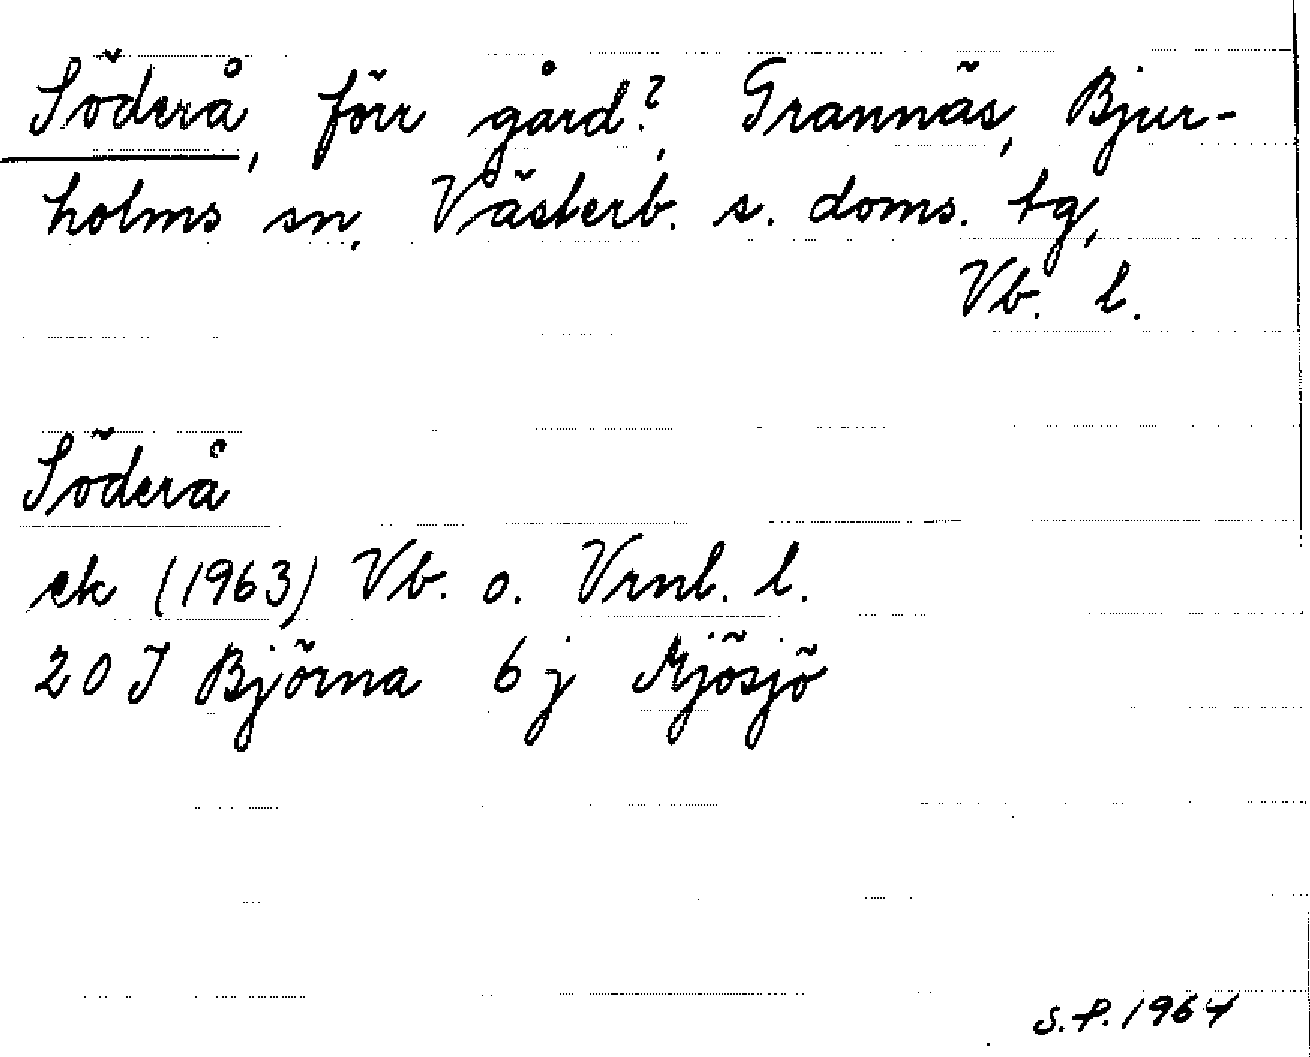 Söderå, förr gård?, Grannäs, Bjur-
holms sn, Västerb. s. doms. tg,
Vb. l.
Söderå
ek (1963) Vb. o. Vrnl. l.
20 J Björna 6 j Mjösjö
S.P. 1964